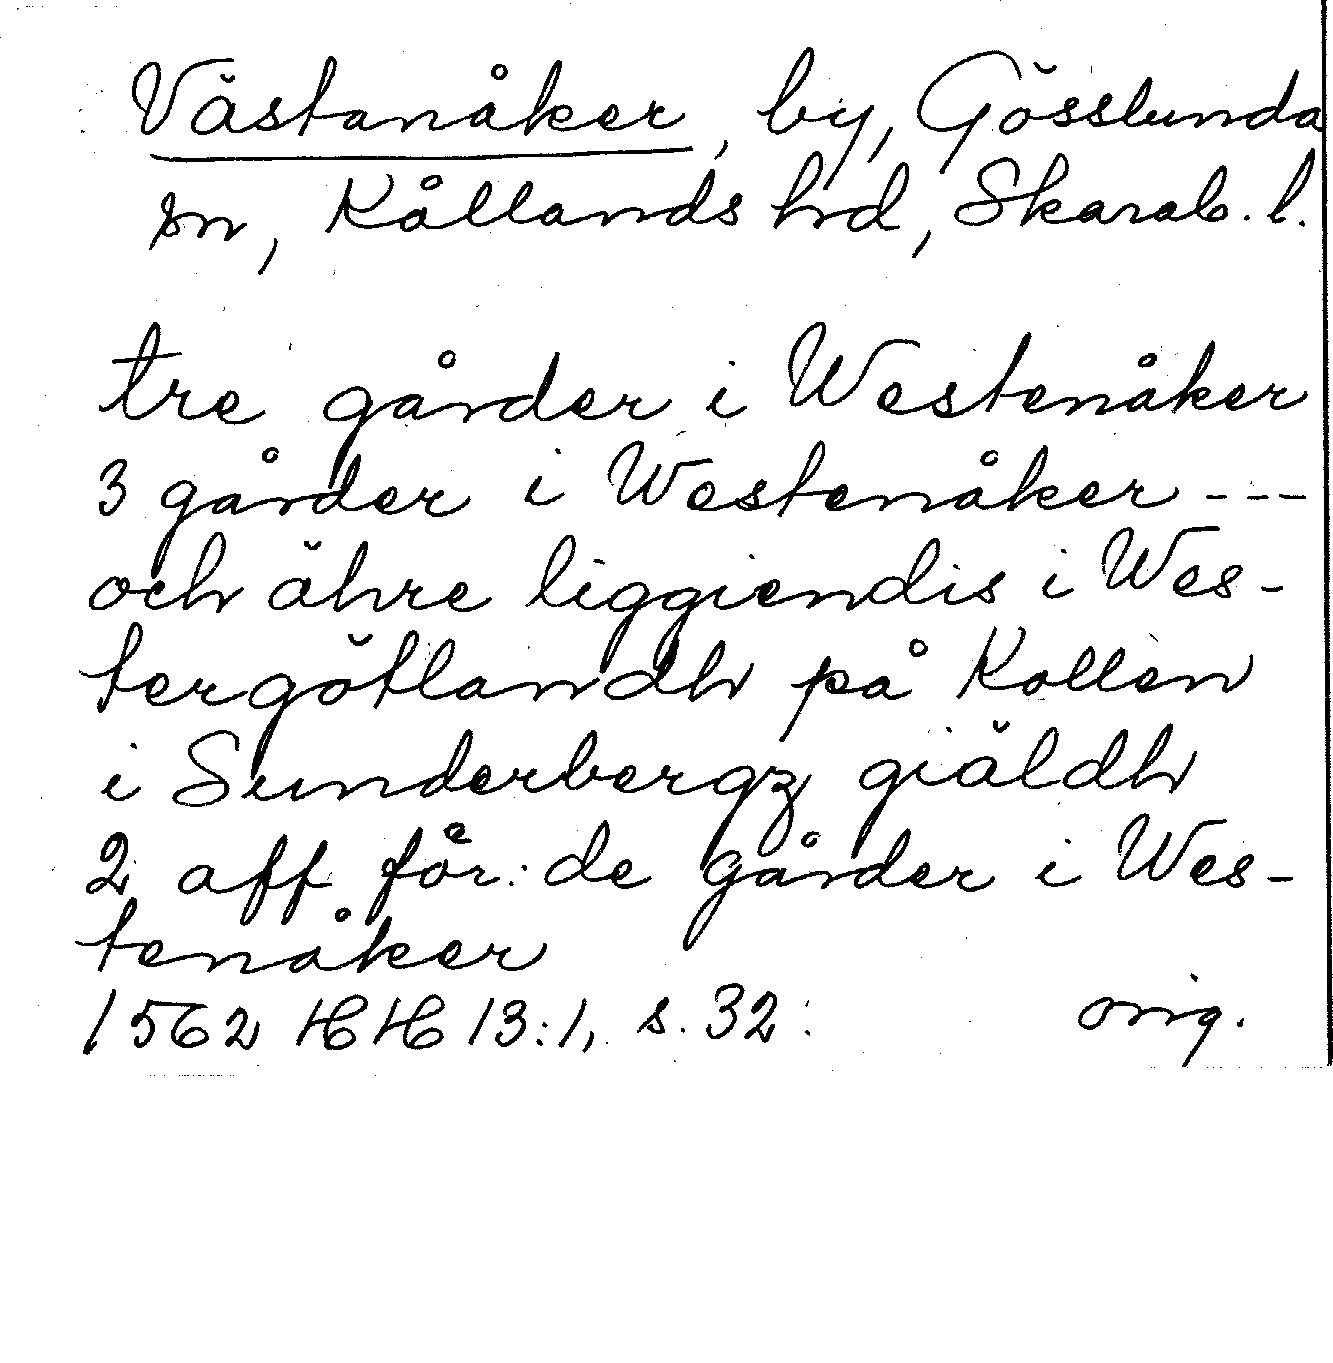 Västanåker, by, Gösslunda
sn, Kållands hrd, Skarab. l.
tre gårder i Westenåker
3 gårder i Westenåker ---
och ähre liggiendis i Wes-
tergötlandh på Kollen
i Sunderbergz giäldh
2 aff för:de gårder i Wes-
tenåker
1562 HH 13:1, s. 32: orig.